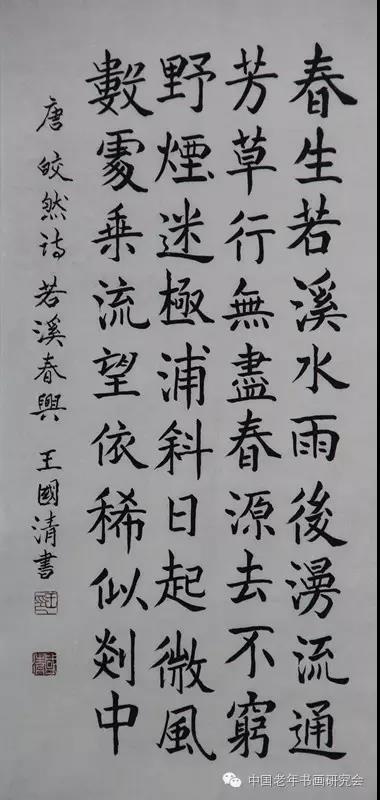 春生若溪水雨後漫流通
芳草行無盡春源去不窮
野煙迷極浦斜日起微風
數處乘流望依稀似剡中
唐 皎然诗 若溪春興 王國清書
中国老年书画研究会